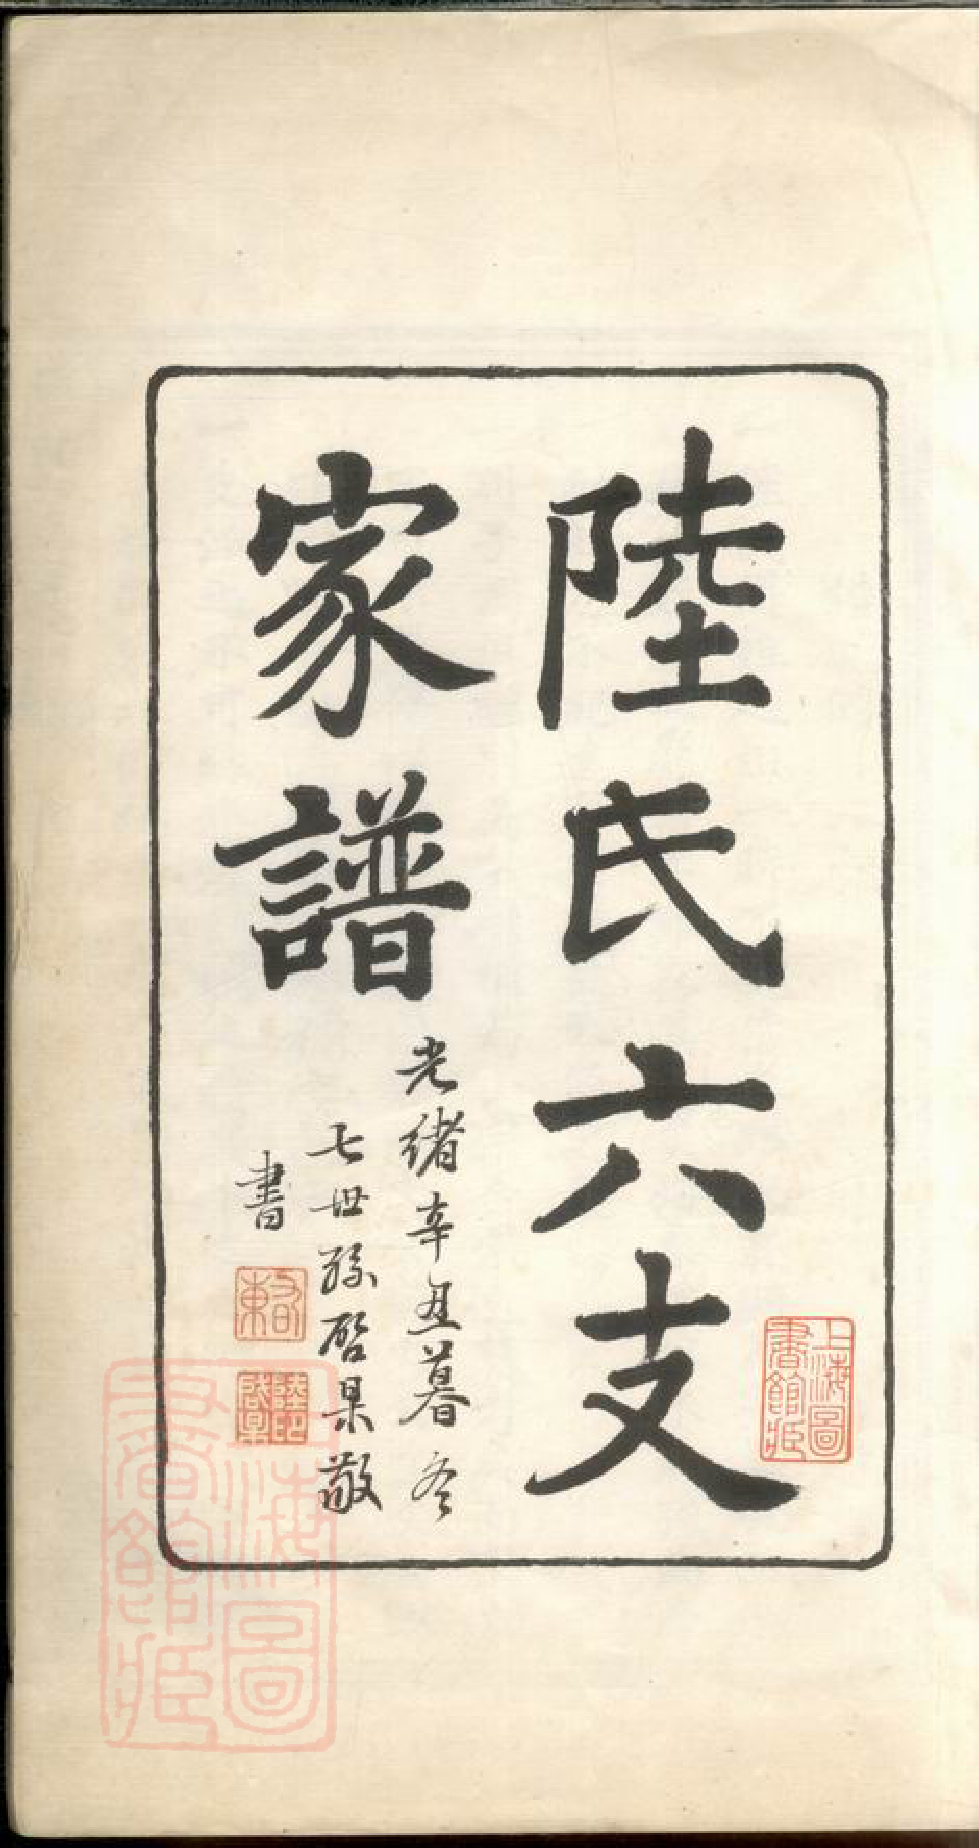 陸氏六支
家譜
光緒辛丑暮冬
七世孫啓杲敬
書
上海圖
書館藏
陸印
啟杲
上海圖
書館藏